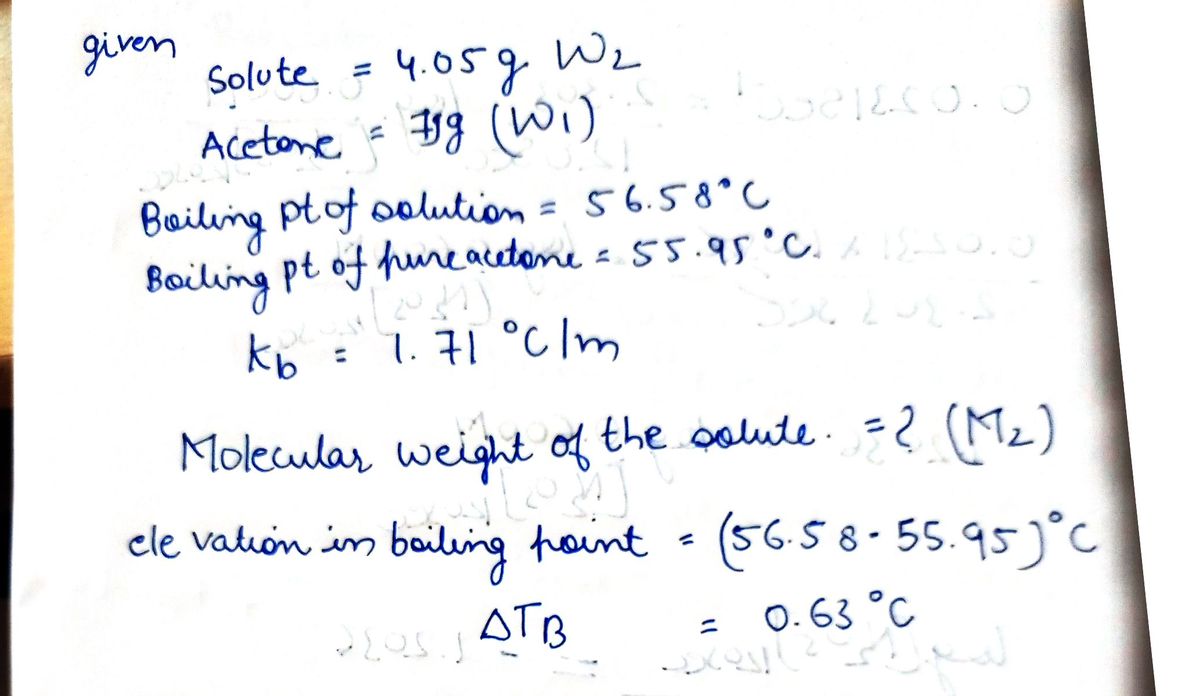 given
Solute = 4.05 g W2
Acetone = 75g (W1)
Boiling pt of solution = 56.58°C
Boiling pt of pure acetone = 55.95°C.
Kb = 1.71 °C/m
Molecular weight of the solute. = ? (M2)
elevation in boiling point = (56.58 - 55.95)°C
ΔTB = 0.63 °C